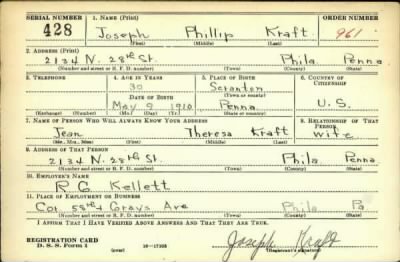 SERIAL NUMBER 1. NAME (Print) ORDER NUMBER
428 Joseph Phillip Kraft 961
(First) (Middle) (Last)
2. ADDRESS (Print)
2134 N. 28th St. Phila Penna
(Number and street or R. F. D. number) (Town) (County) (State)
3. TELEPHONE 4. AGE IN YEARS 5. PLACE OF BIRTH 6. COUNTRY OF CITIZENSHIP
30 Scranton
DATE OF BIRTH (Town or county)
May 9 1910 Penna. U.S.
(Exchange) (Number) (Mo.) (Day) (Yr.) (State or country)
7. NAME OF PERSON WHO WILL ALWAYS KNOW YOUR ADDRESS 8. RELATIONSHIP OF THAT PERSON
Jean Theresa Kraft Wife
(Mr., Mrs., Miss) (First) (Middle) (Last)
9. ADDRESS OF THAT PERSON
2134 N. 28th St. Phila Penna
(Number and street or R. F. D. number) (Town) (County) (State)
10. EMPLOYER'S NAME
R G Kellett
11. PLACE OF EMPLOYMENT OR BUSINESS
Cor 58th & Grays Ave Phila Pa
(Number and street or R. F. D. number) (Town) (County) (State)
I AFFIRM THAT I HAVE VERIFIED ABOVE ANSWERS AND THAT THEY ARE TRUE.
REGISTRATION CARD
D. S. S. Form 1 (over) 16—17105 Joseph Kraft
(Registrant's signature)